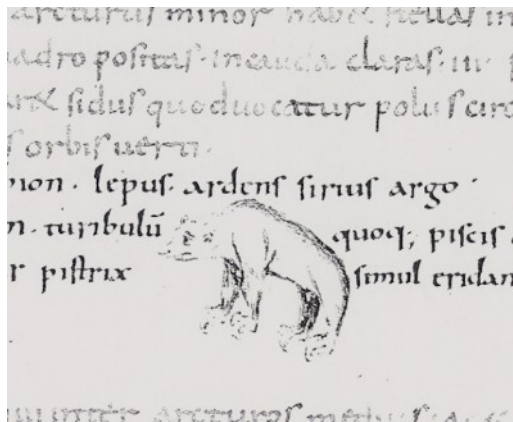 arcturus minor habet stellas in
uadro positas. in cauda claras. iii.
sidus quod uocatur polus circ
s orbis uerti.
ion. lepus. ardens sirius argo
n. turibulū quoq; piscis
r pistrix simul eridan
inter arcturos